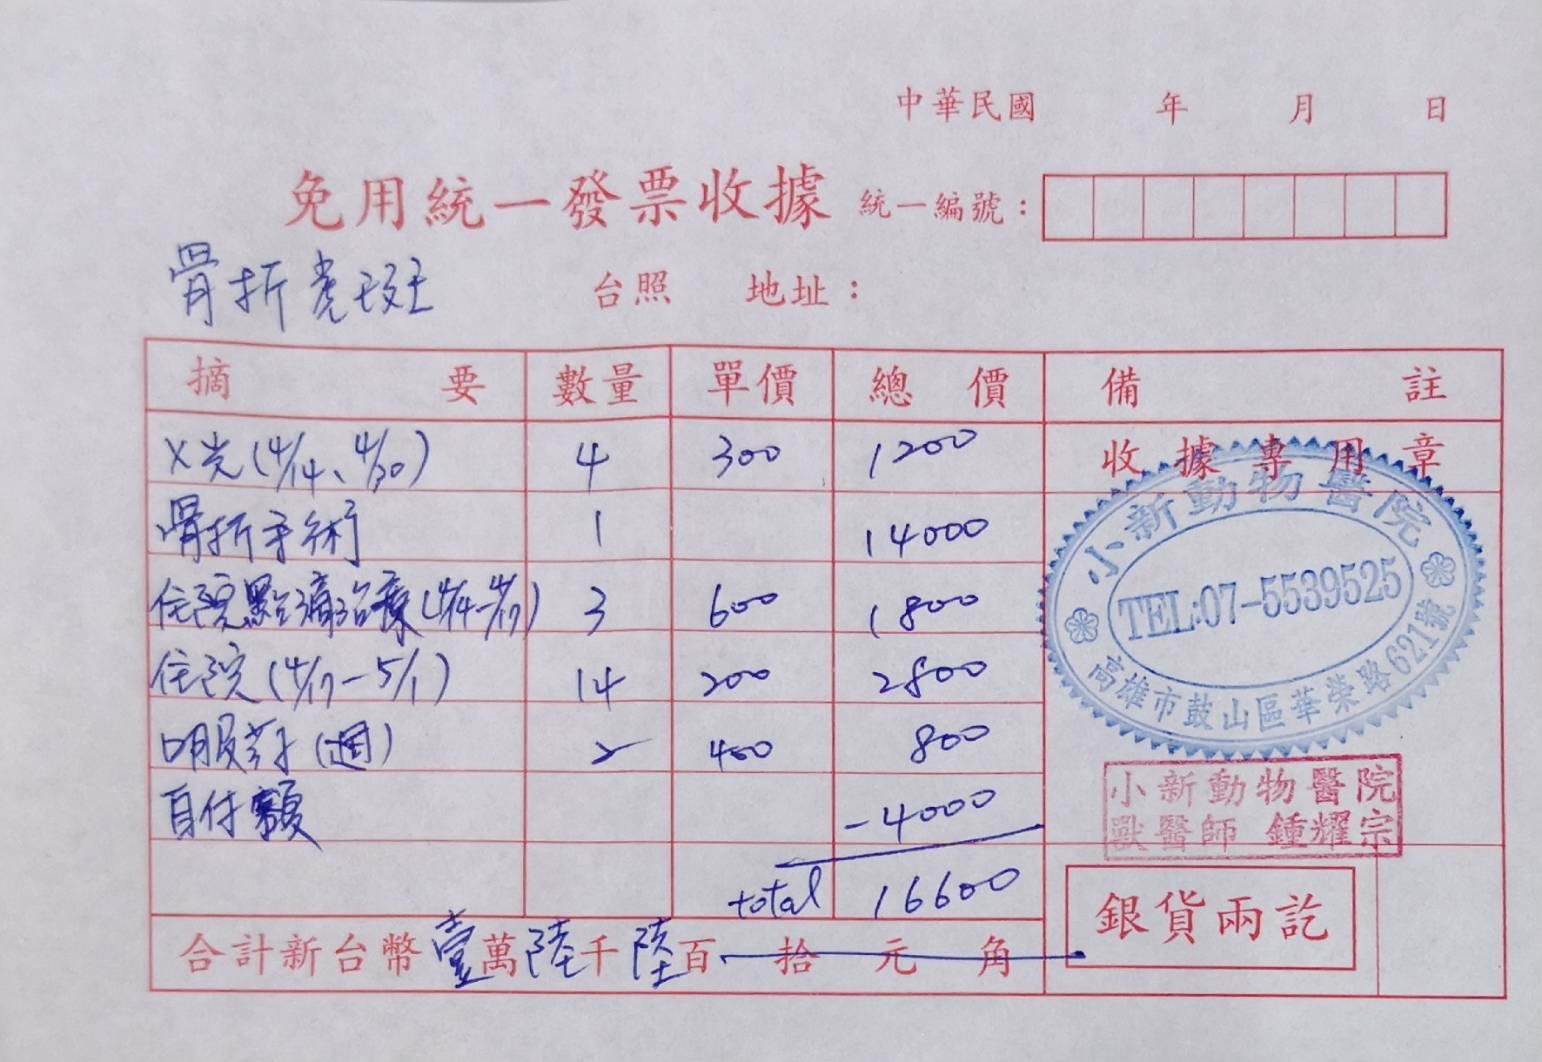 中華民國 年 月 日
免用統一發票收據 統一編號：
骨折虎斑 台照 地址：
摘要 數量 單價 總價 備註
X光(4/14、4/30) 4 300 1200 收據專用章
骨折手術 1 14000
住院點滴治療(4/14-4/17) 3 600 1800
住院(4/17-5/1) 14 200 2800
口服药(週) 2 400 800
自付額 -4000
total 16600
合計新台幣壹萬陸千陸百 拾 元 角
小新動物醫院
TEL:07-5539525
高雄市鼓山區華榮路621號
小新動物醫院
獸醫師 鍾耀宗
銀貨兩訖